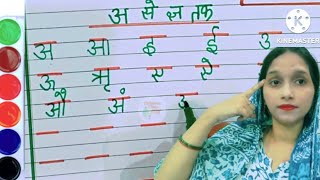 अ से ज्ञ तक
अ आ इ ई उ
ऊ ऋ ए ऐ
औ अं अ
KINEMASTER